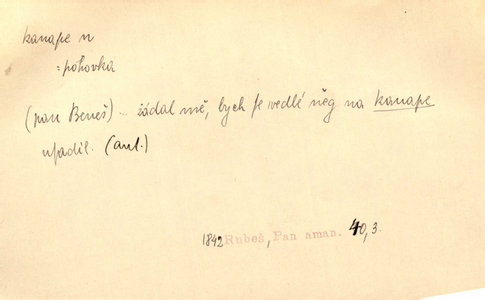 kanape n
= pohovka
(pan Beneš) ... žádal mě, bych se vedlé něg na kanape
usadil. (aut.)
1842 Rubeš, Pan aman. 40,3.